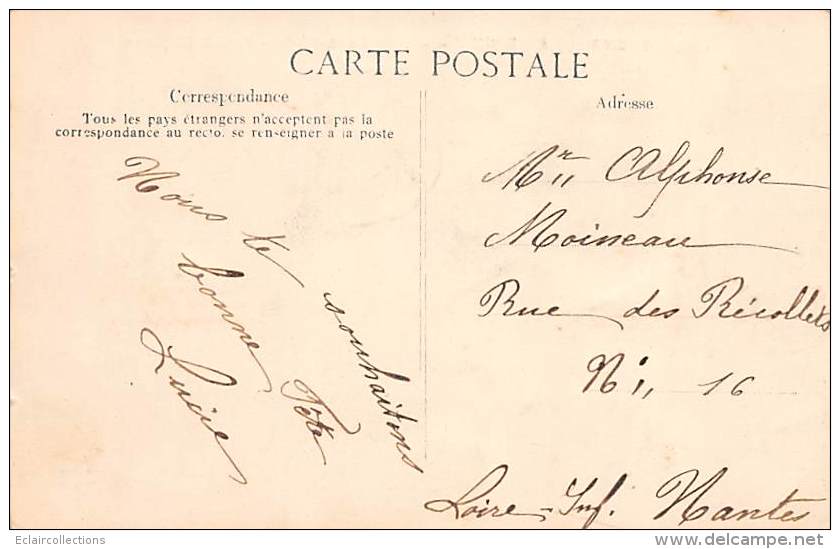 CARTE POSTALE
Correspondance
Tous les pays étrangers n'acceptent pas la
correspondance au recto. se renseigner à la poste
Nous te souhaitons
bonne Fête
Lucie
Adresse
Mr Alphonse
Moineau
Rue des Récollets
No 16
Loire-Inf. Nantes
Eclaircollections
www.delcampe.net